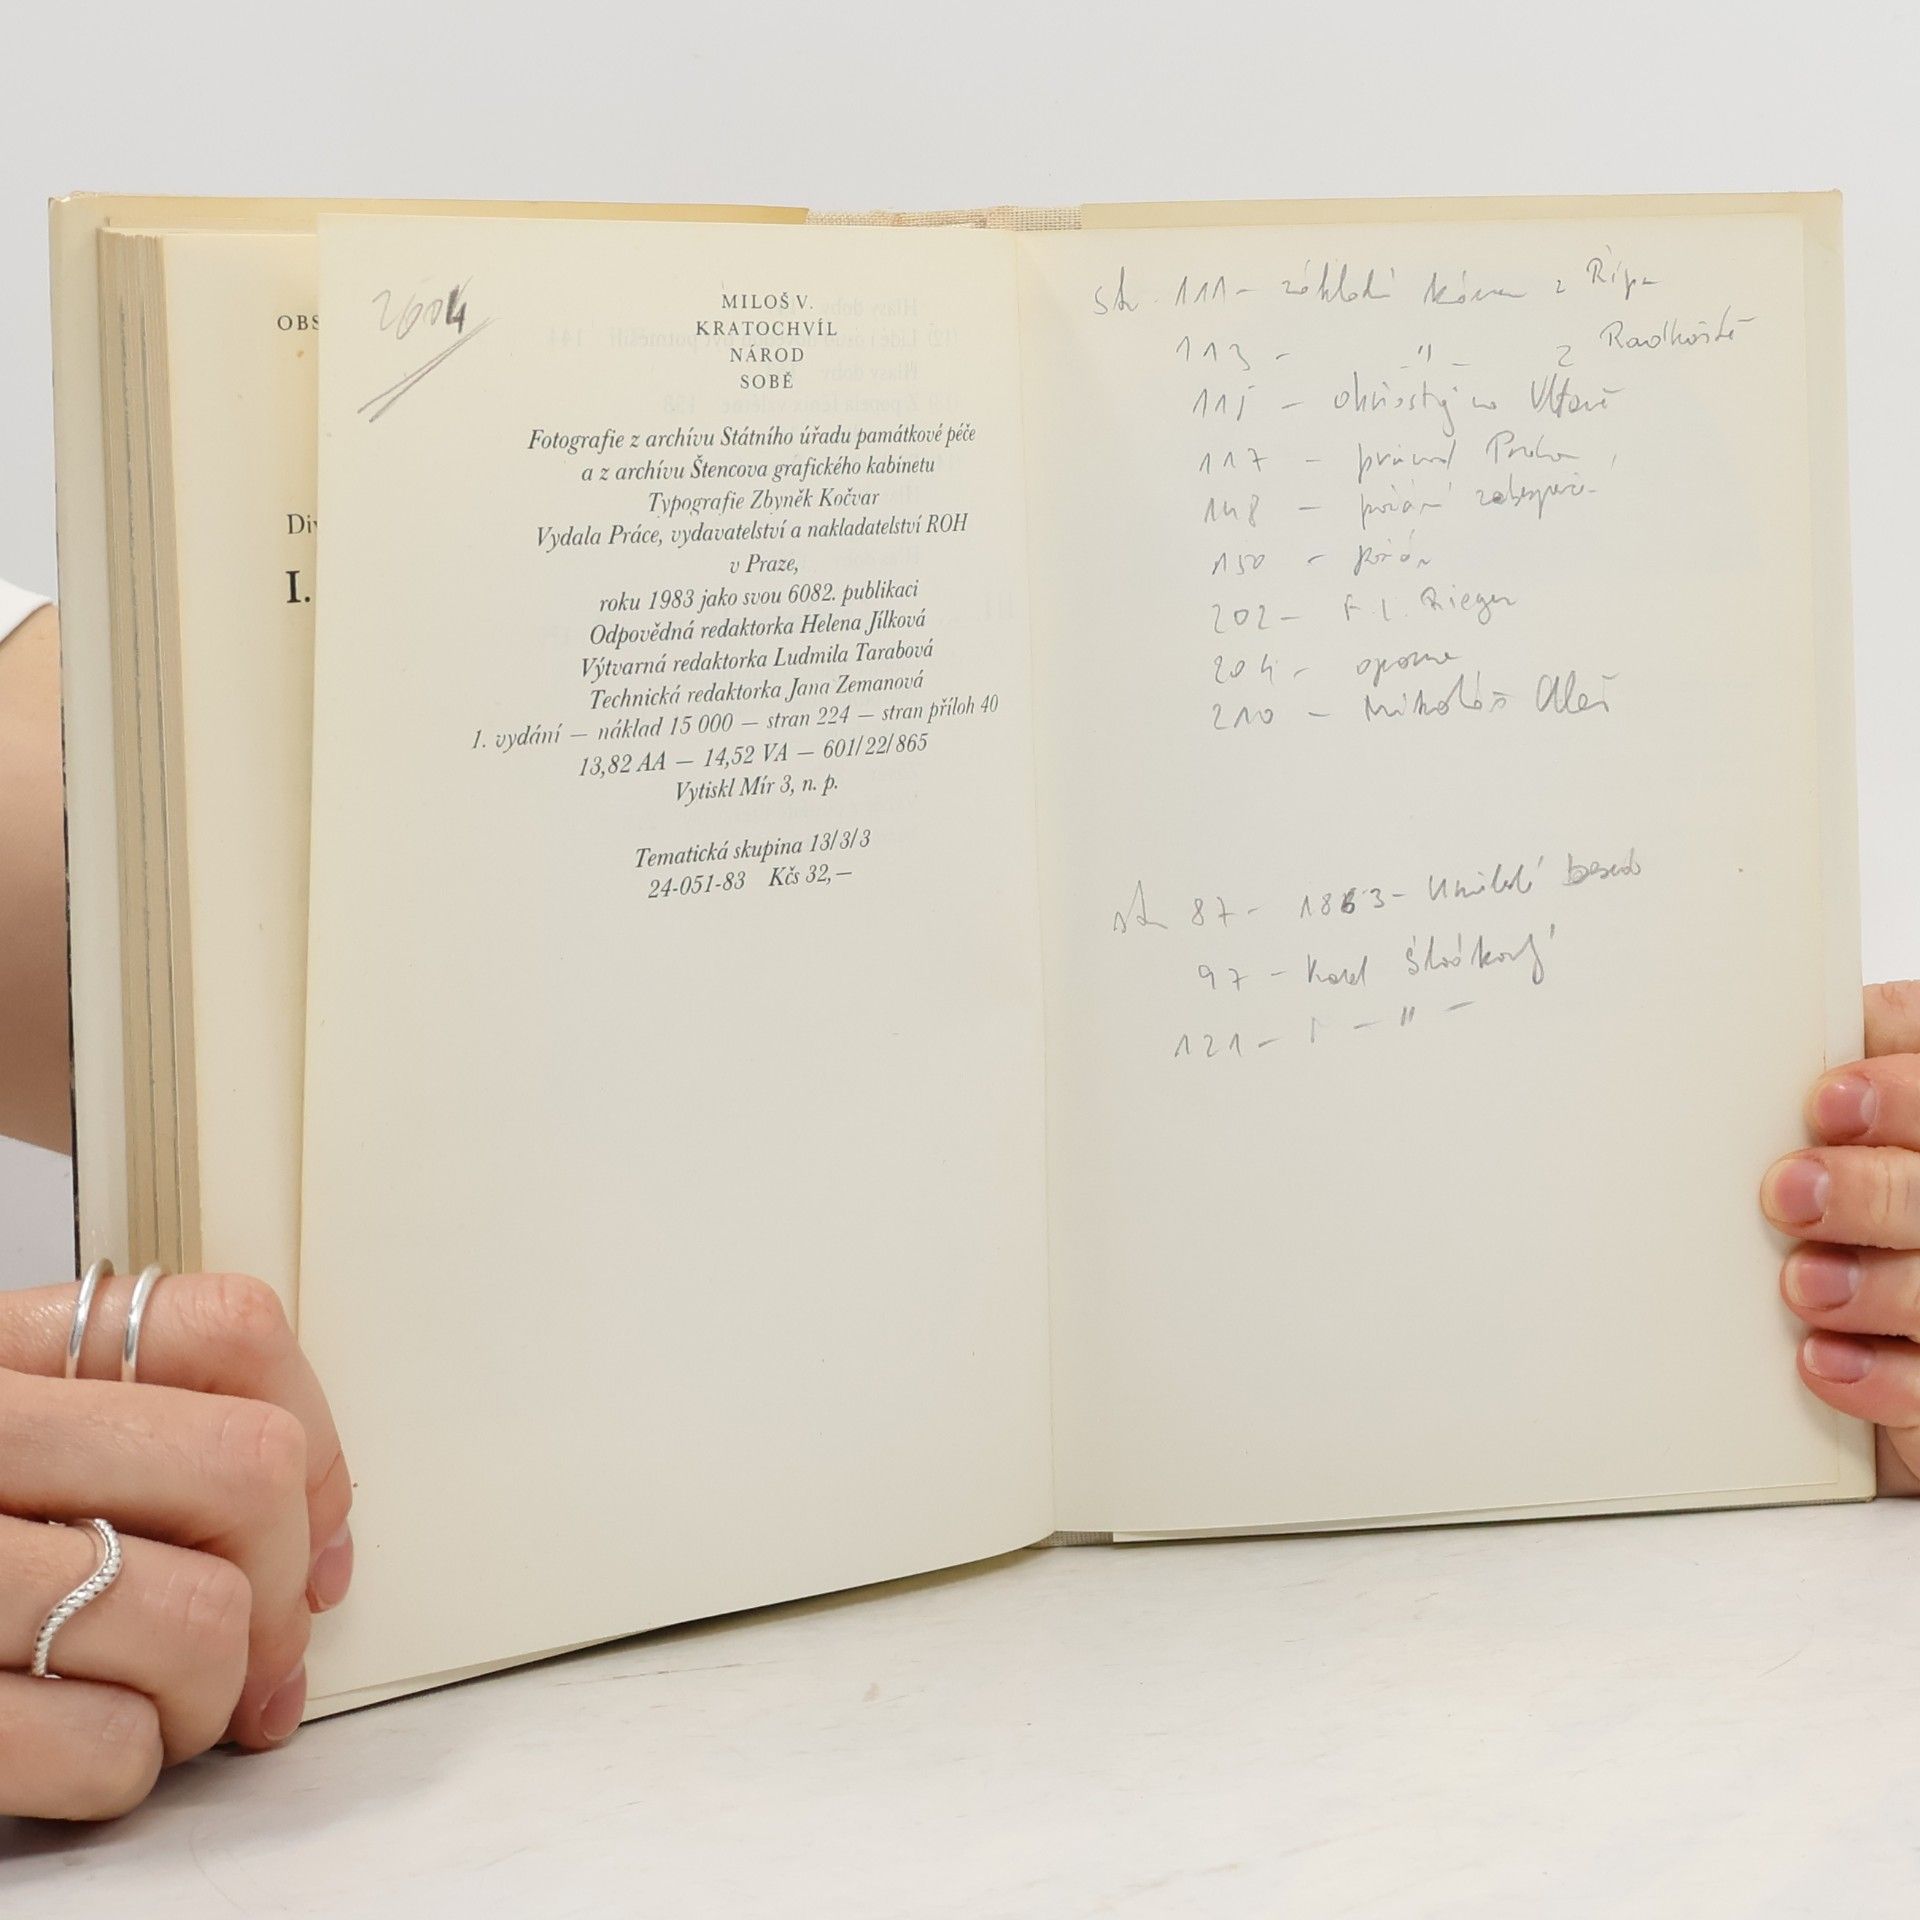 OBS
Div
I.
2004
MILOŠ V.
KRATOCHVÍL
NÁROD
SOBĚ
Fotografie z archívu Státního úřadu památkové péče
a z archívu Štencova grafického kabinetu
Typografie Zbyněk Kočvar
Vydala Práce, vydavatelství a nakladatelství ROH
v Praze,
roku 1983 jako svou 6082. publikaci
Odpovědná redaktorka Helena Jílková
Výtvarná redaktorka Ludmila Tarabová
Technická redaktorka Jana Zemanová
1. vydání — náklad 15 000 — stran 224 — stran příloh 40
13,82 AA — 14,52 VA — 601/22/865
Vytiskl Mír 3, n. p.
Tematická skupina 13/3/3
24-051-83 Kčs 32,—
str. 111 - základní kámen z Řípu
113 - " - z Radhoště
115 - na Vltavě
117 - Praha
148 - požární
150 - požár
202 - F. L. Rieger
204 - opona
210 - Mikoláš Aleš
str 87 - 1863 - Umělecká beseda
97 - Karel
121 - - " -